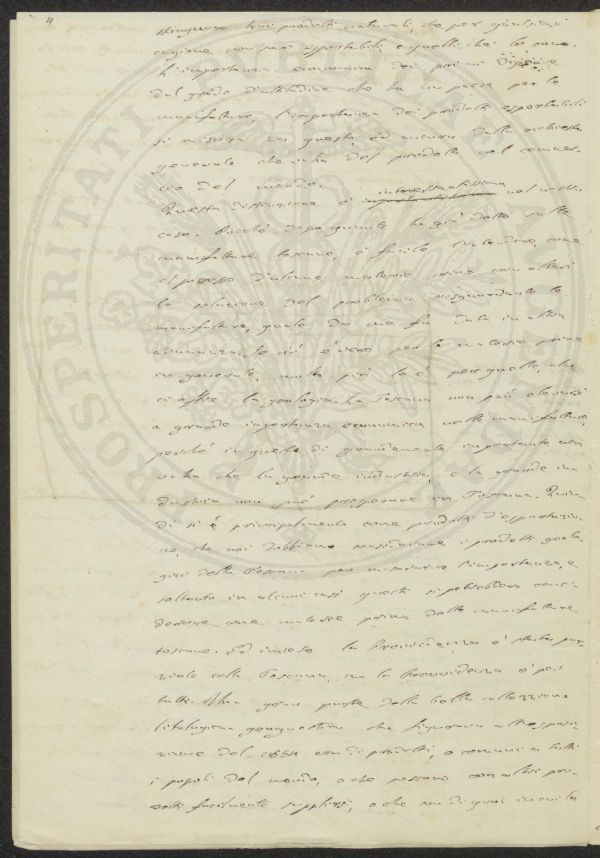 4
stinguere trai prodotti naturali, che per qualsiasi
cagione non sono esportabili, e quelli che lo sono.
L'importanza economica dei primi dipende
dal grado d'attitudine che ha un paese per le
manifatture, l'importanza dei prodotti esportabili
si misura da questa, ed ancora dalla richiesta
generale che si ha del prodotto nel commer-
cio del mondo.
Questa distinzione è interessantissima nel nostro
caso. Perché dopo quanto ho già detto sulle
manifatture toscane, è facile l'intendere, come
il possesso d'alcune materie prime non alteri
la soluzione del problema risguardante le
manifatture, quale da me fu data in altra
adunanza. Se ciò è vero per le materie prime
in generale, molto più lo è per quelle, che
ci offre la geologia. La Toscana non può elevarsi
a grande importanza economica nelle manifatture,
perché in queste di grandemente importante non
v'ha che la grande industria, e la grande in-
dustria non può prosperare in Toscana. Quin-
di si è principalmente come prodotti d'esportazio-
ne, che noi dobbiamo considerare i prodotti geolo-
gici della Toscana per misurarne l'importanza, e
soltanto in alcuni casi questi si potrebbero consi-
derare come materie prime delle manifatture
toscane. Ed invero la Provvidenza è stata par-
ziale colla Toscana, ma la Provvidenza è per
tutti. Una gran parte della bella collezione
litologica geognostica che figurava all'esposi-
zione del 1854 eran di prodotti, o comuni a tutti
i popoli del mondo, o che possono con altri pro-
dotti facilmente supplirsi, o che